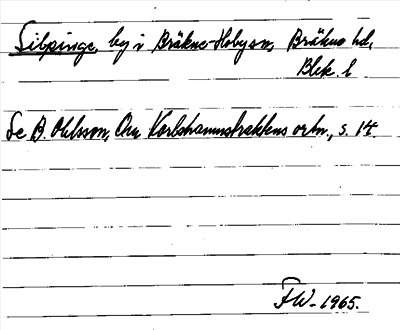 Silpinge, by i Bräkne-Hoby sn, Bräkne hd,
Blek. l
Se B. Ohlsson, Om Karlshamnstraktens ortn., s. 14.
FW. 1965.